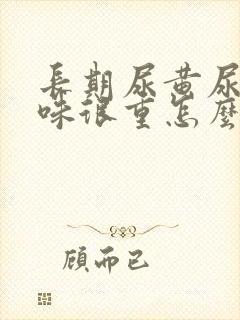 長期尿黄尿
味很重怎麼
顾而已